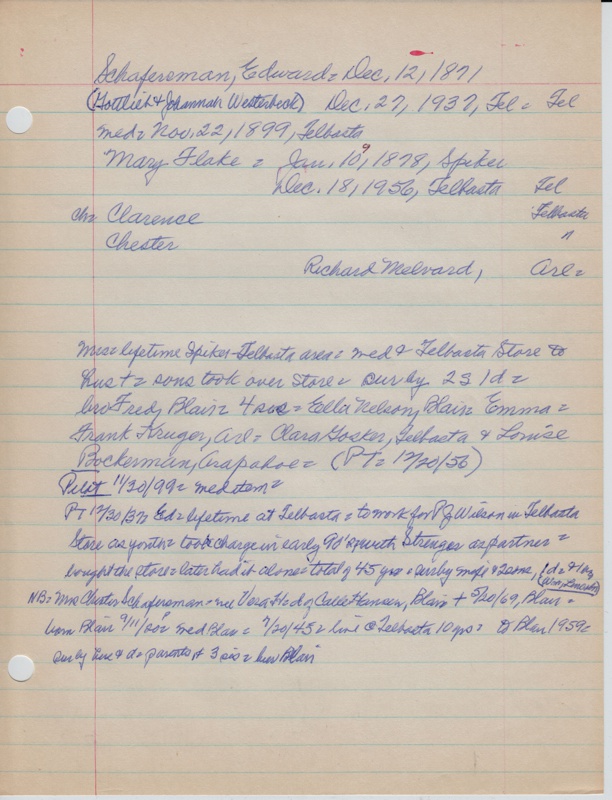 Schafersman, Edward = Dec, 12, 1871
(Gottlieb & Johannah Westerbeck) Dec, 27, 1937, Tel = Tel
med = Nov. 22, 1899, Telbasta
Mary Flake = Jan, 10, 9 1878, Spiker
Dec. 18, 1956, Telbasta Tel
Ch = Clarence Telbasta
Chester "
Richard Melvard, Arl =
Mrs = lifetime Spiker-Telbasta area = med & Telbasta Store to
hus + = sons took over store = sur by 2S 1d =
bro Fred, Blair = 4 sis = Ella Nelson, Blair = Emma =
Frank Kruger, Arl = Clara Gosker, Telbasta & Louise
Bockerman, Arapahoe = (PT = 12/20/56)
Pilot 11/30/99 = med item =
PT 12/30/37 Ed = lifetime at Telbasta = to work for P J Wilson in Telbasta
Store as youth = took charge in early 90's with Stenger as partner =
bought the store = later had it alone = total of 45 yrs = sur by 2 sons, 1d =
NB = Mrs Chester Schafersman = nee Vera H d of Hansen, Blair + 5/20/69, Blair =
born Blair 9/11/ = med Blair = 7/20/45 = live @ Telbasta 10 yrs = to Blair 1959 =
sur by hus & d = parents & 3 sis = bur Blair